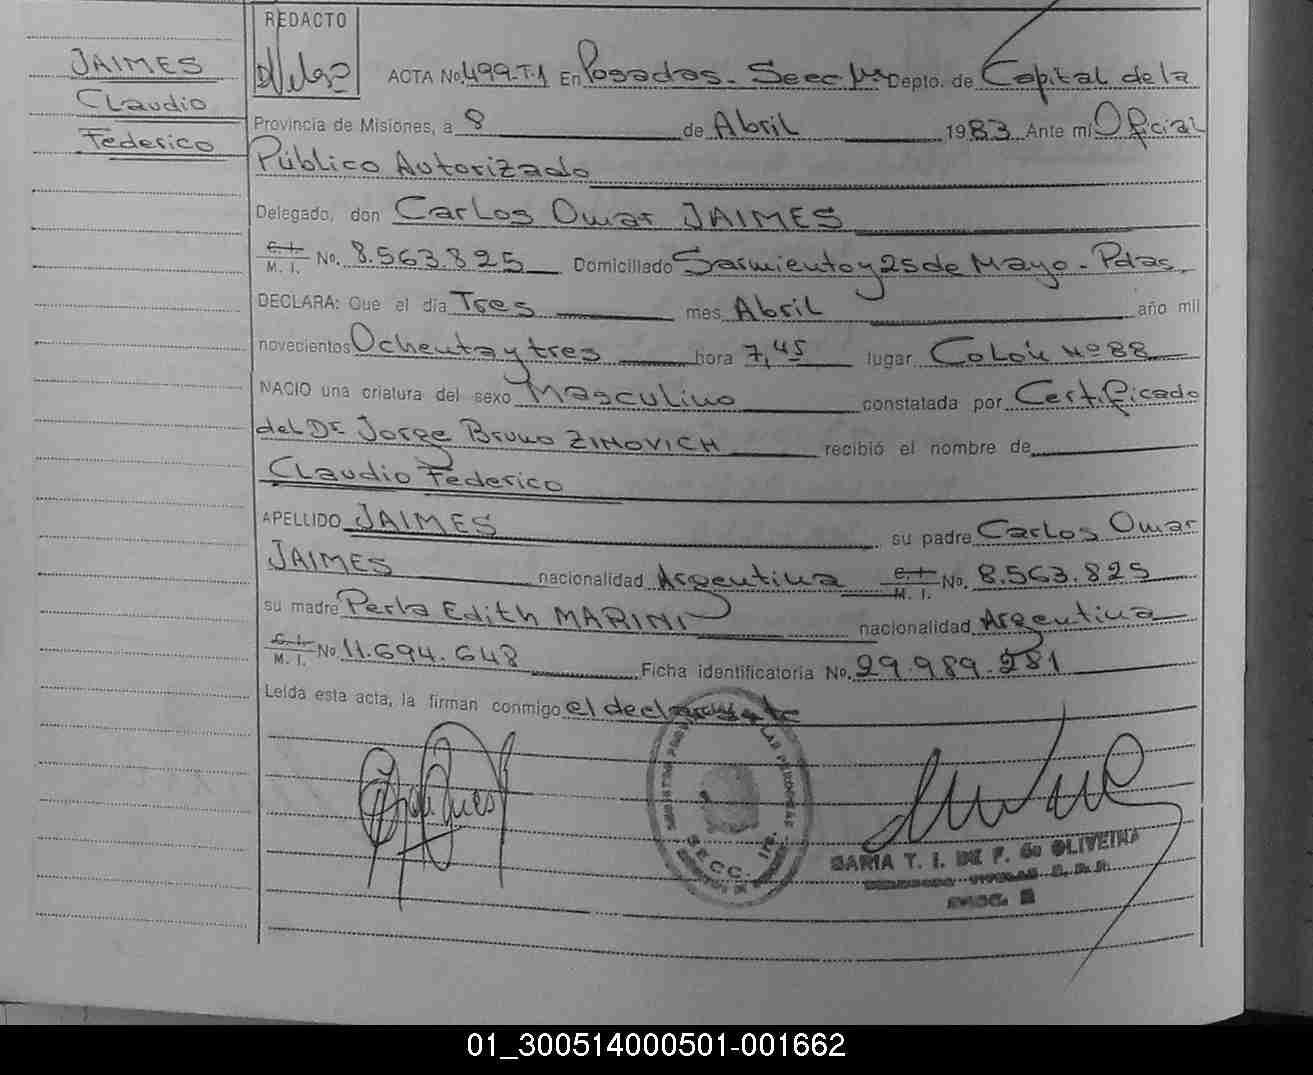 JAIMES
Claudio
Federico
REDACTO
ACTA No. 499-T.1 En Posadas. Secc. 1ra Depto. de Capital de la
Provincia de Misiones, a 8 de Abril 1983 Ante mí Oficial
Público Autorizado
Delegado, don Carlos Omar JAIMES
C. I. M. I. No. 8.563.825 Domiciliado Sarmiento y 25 de Mayo - Pdas.
DECLARA: Que el día Tres mes Abril año mil
novecientos Ochenta y tres hora 7,45 lugar Colón Nº 88
NACIO una criatura del sexo Masculino constatada por Certificado
del Dr. Jorge Bruno ZIMOVICH recibió el nombre de
Claudio Federico
APELLIDO JAIMES su padre Carlos Omar
JAIMES nacionalidad Argentina C. I. M. I. No. 8.563.825
su madre Perla Edith MARINI nacionalidad Argentina
C. I. M. I. No 11.694.648 Ficha identificatoria No. 29.989.281
Leída esta acta, la firman conmigo el declarante
SECC. 1ra.
SARIA T. I. DE F. de OLIVEIRA
01_300514000501-001662